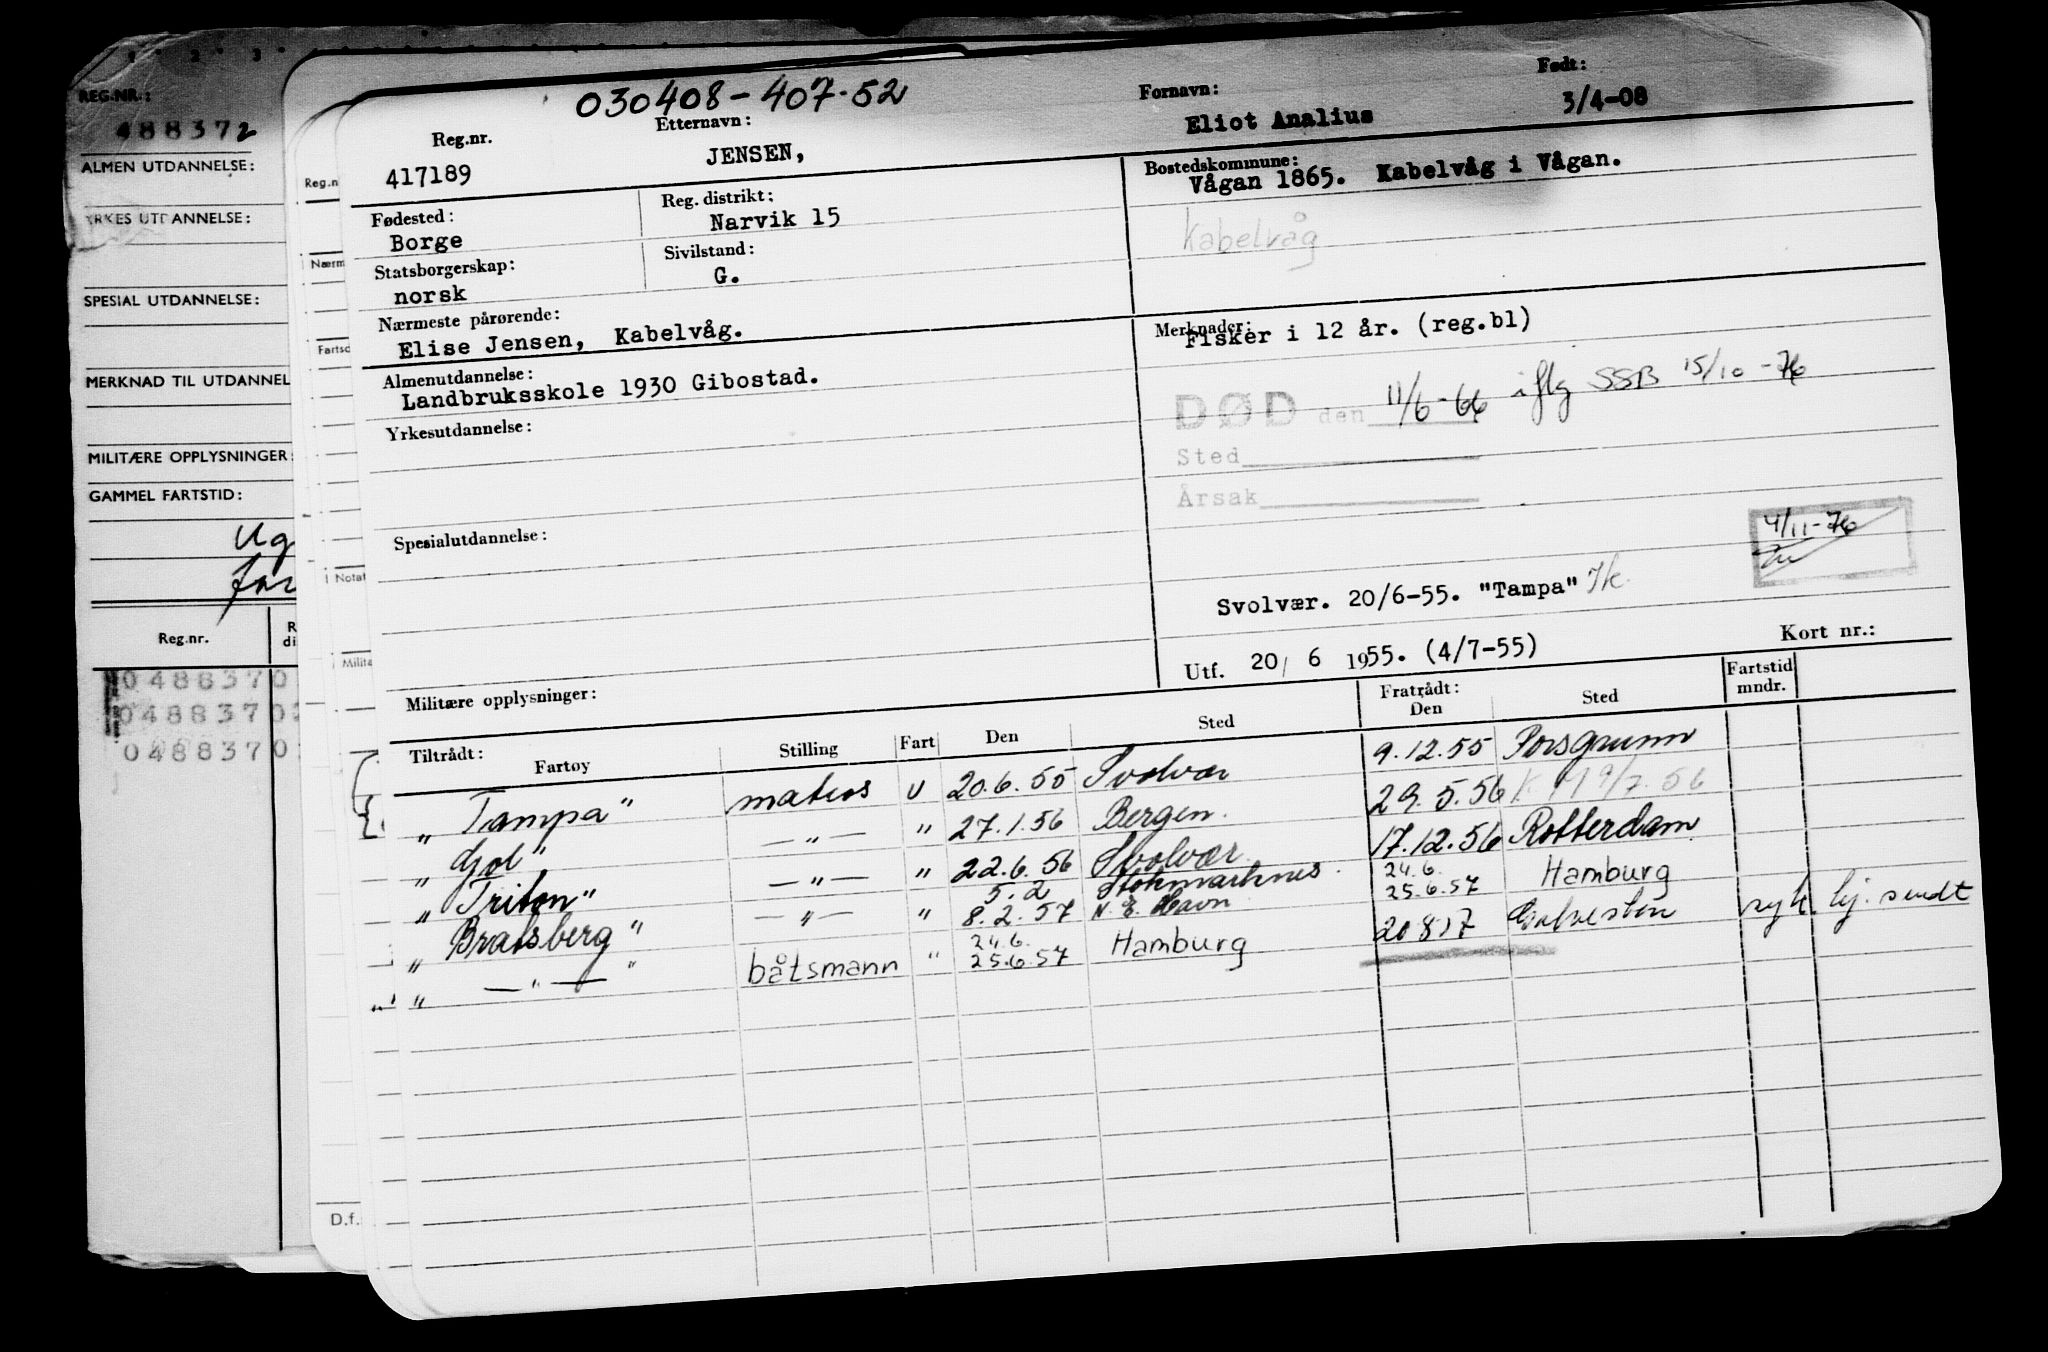 1 2 3
REG.NR.:
488372
ALMEN UTDANNELSE:
YRKES UTDANNELSE:
SPESIAL UTDANNELSE:
MERKNAD TIL UTDANNEL
MILITÆRE OPPLYSNINGER:
GAMMEL FARTSTID:
ug
for
Reg.nr.
R
di
0488370
0488370
0488370
Reg.n
Nærm
Fartsd
Notat
Milita
D.f.
030408-407-52
Reg.nr.
417189
Etternavn:
JENSEN,
Fornavn:
Eliot Analius
Født:
3/4-08
Fødested:
Borge
Reg. distrikt:
Narvik 15
Bostedskommune:
Vågan 1865. Kabelvåg i Vågan.
Kabelvåg
Statsborgerskap:
norsk
Sivilstand:
G.
Nærmeste pårørende:
Elise Jensen, Kabelvåg.
Merknader:
Fisker i 12 år. (reg.bl)
Almenutdannelse:
Landbruksskole 1930 Gibostad.
DØD den 11/6-66 iflg SSB 15/10-76
Sted
Årsak
Yrkesutdannelse:
4/11-76
Spesialutdannelse:
Svolvær. 20/6-55. "Tampa"
Utf. 20/ 6 1955. (4/7-55)
Kort nr.:
Militære opplysninger:
Tiltrådt: Fartøy Stilling Fart Den Sted Fratrådt: Den Sted Fartstid mndr.
"Tampa" matros U 20.6.55 Svolvær 9.12.55 Porsgrunn
"Gol" —"— " 27.1.56 Bergen. 29.5.56
"Triton" —"— " 22.6.56 Svolvær 17.12.56 Rotterdam
"Bratsberg" —"— " 5.2 8.2.57 Stokmarknes N. E. Havn 24.6. 25.6.57 Hamburg
" —"— " båtsmann " 24.6. 25.6.57 Hamburg 20 8 57 Galveston syk hj. sendt